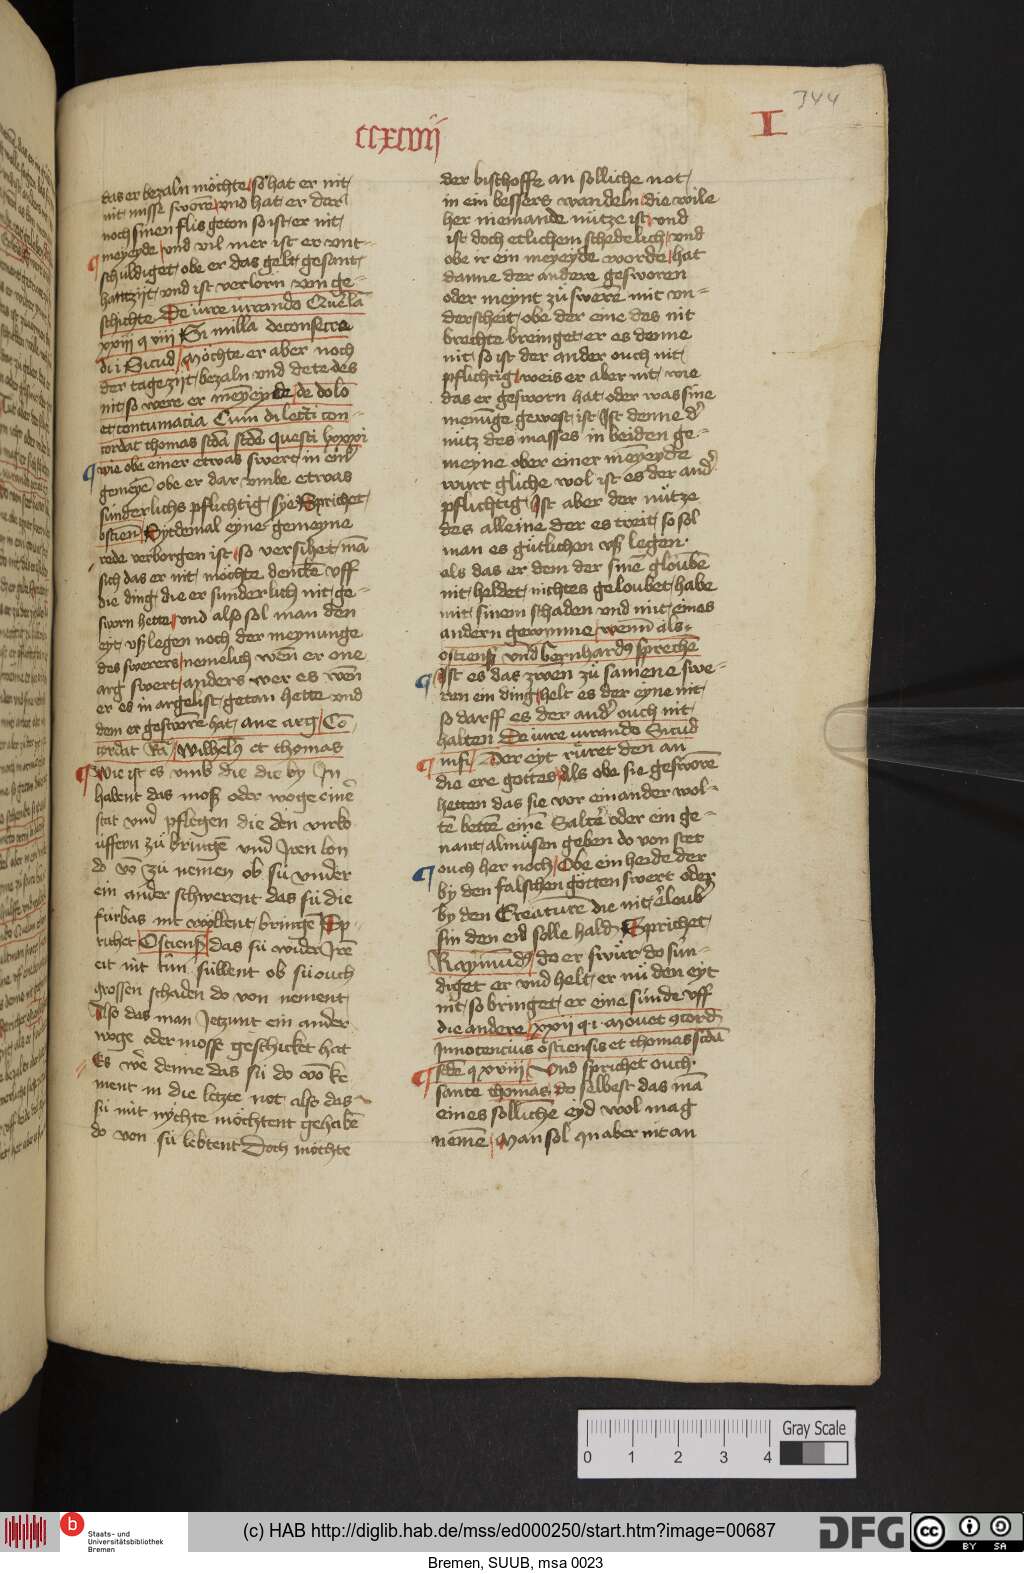 344
ccxcvij
I
das er bezaln möchte / so hat er nit
nit misse sworē vnd hat er dar
noch sinen flis geton so ist er nit
meyeyde / vnd vil mer ist er vnt-
schuldiget obe er das gelt gesant
hattzijt vnd ist verlorn von ge-
schichte De iure iurando Querelā
xxiij q viij Si nulla deconsecra
di i Sicud / Möchte er aber noch
der tagezijt bezaln vnd dete des
nit so were er meyeyde / de dolo
et contumacia Cum dilecti con-
cordat thomas scda scde questi lxxxxi
wie obe einer etwas swert in einr
gemeyē obe er dar vmbe etwas
sunderlichs pfluchtig sye Sprichet
ostien Sytdemal eyne gemeyne
rede verborgen ist so versihet mā
sich das er nit möchte denckē vff
die ding die er sunderlich nit ge-
sworn hette vnd also sol man den
eyt vß legen noch der meynunge
des swerers nemelich wēn er one
arg swert anders wer es wēn
er es in argelist getan hette vnd
dem er gesworē hat ane arg / Cō
cordat Ra wilhelm et thomas
Wie ist es vmb die die by In
habent das moß oder woge einer
stat vnd pflegen die den virko
uffern zü bringē vnd Iren lon
do vō zü nemen ob sü vnder
ein ander schwerent das sü die
fürbas nit wöllent bringē Sp-
richet Ostiens das sü wider Irē
eit nit tūn süllent ob sü ouch
grossen schaden do von nement
Also das man Jetzunt ein ander
woge oder mosse geschicket hat
Es wer denne das sü do vō ke
ment in die letzte not also das
sü nüt nychte möchtent gehabē
do von sü lebtent Doch möchte
der bischoffe an solliche not
in ein bessers wandeln die wile
her niemande nütze ist vnd
ist doch etlichem schedelich vnd
obe ir ein meyeyde worde hat
danne der andere gesworen
oder meynt zü swerē mit vn-
derscheit obe der eine das nit
brechte breinget er es denne
nit so ist der ander ouch nit
pfluchtig weis er aber nit wie
das er gesworn hat oder was sine
menūge gewest ist Ist denne dr
nutz des masses in beiden ge-
meine ober einer meyeyde
wurt gliche wol ist es der ander
pfluchtig Ist aber der nütze
des alleine der es treit so sol
man es gütlichen vß legen
als das er dem der sinē gloubē
nit heldet nichtes geloubet habe
mit sinem schaden vnd mit eines
andern gewonne wenn als
ostiens vnd bernhardus sprechē
Ist es das zwen zü samene swe-
ren ein ding helt es der eyne nit
so darff es der ander ouch nit
halten De iure iurando Sicud
nisi / Der eyt rüret den an
die ere gottes Als obe sie gesworē
hetten das sie vor einander wol-
tē bettē einē Salter oder ein ge-
nant almüsen geben do von stet
ouch her noch / Obe ein heide der
by den falschen götten swert oder
by den Creaturē die nit erloub
sin den eid solle hald Sprichet
Raymūdus do er swür do sün-
diget er vnd helt er nü den eyt
nit so bringet er eine sünde vff
die andere / xxij q i Mouet 9cord
Innocencius ostiensis et thomas scda
scde q xviij Vnd sprichet ouch
sante thomas do selbest das mā
eines sollichē eyd wol mag
nemē / Man sol in aber nit an
Gray Scale
0 1 2 3 4
b
Staats- und
Universitätsbibliothek
Bremen
(c) HAB http://diglib.hab.de/mss/ed000250/start.htm?image=00687
DFG
cc
BY SA
Bremen, SUUB, msa 0023